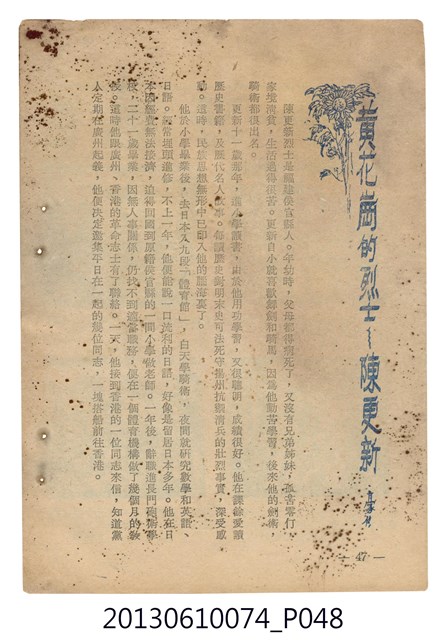 黃花崗的烈士～陳更新
陳更新烈士是福建侯官縣人。年幼時，父母都得病死了，又沒有兄弟姊妹，孤苦零仃，
家境淸貧，生活過得很苦。更新自小就喜歡舞劍和騎馬，因爲他勤苦學習，後來他的劍術，
騎術都很出名。
更新十一歲那年，進小學讀書，由於他用功學習，又很聰明，成績很好。他在課餘愛讀
歷史書籍，及歷代名人故事。每讀歷史到明末史可法死守揚州抗觀淸兵的壯烈事實，深受感
動。這時，民族思想無形中已印入他的腦海裏了。
他於小學畢業後，去日本入九段「體育館」，白天學騎術，夜間就研究數學和英語、
日語。經常埋頭進修，不上一年，他便能說一口流利的日語，好像是留居日本多年。他在日
本因經費無法接濟，迫得回國到原籍侯官縣的一間小學做老師。一年後，辭職進長門砲術學
校，二十一歲畢業，因無人事關係，仍找不到適當職務，便在一個體育機構做了幾個月的敎
員。這時他跟廣州、香港的革命志士有了聯絡。一天，他接到香港的一位同志來信，知道黨
人定期在廣州起義，他便決定邀集平日在一起的幾位同志，一塊搭船前往香港。
— 47 —
20130610074_P048